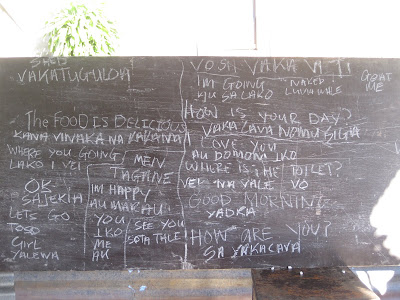 SHE IS
VAKATUGULOVA
The FOOD IS DELICIOUS
KANA VINAKA NA KAKANA
WHERE YOU GOING
LAKO I VEI
OK
SA IEKIA
LETS GO
TOSO
GIRL
YALEWA
MEN
TAGANE
IM HAPPY
AU MARAU
YOU
IKO
ME
AU
SEE YOU
SOTA TALE
VOSA VAKA VITI
IM GOING
KIU SA LAKO
NAKED
LUVAWALE
GREAT
ME
HOW IS YOUR DAY?
VAKACAVA NOMU SIGA
LOVE YOU
AU DOMONI IKO
WHERE IS THE TOILET?
VEI NA VALE VO
GOOD MORNING
YADRA
HOW ARE YOU?
SA VAKACAVA